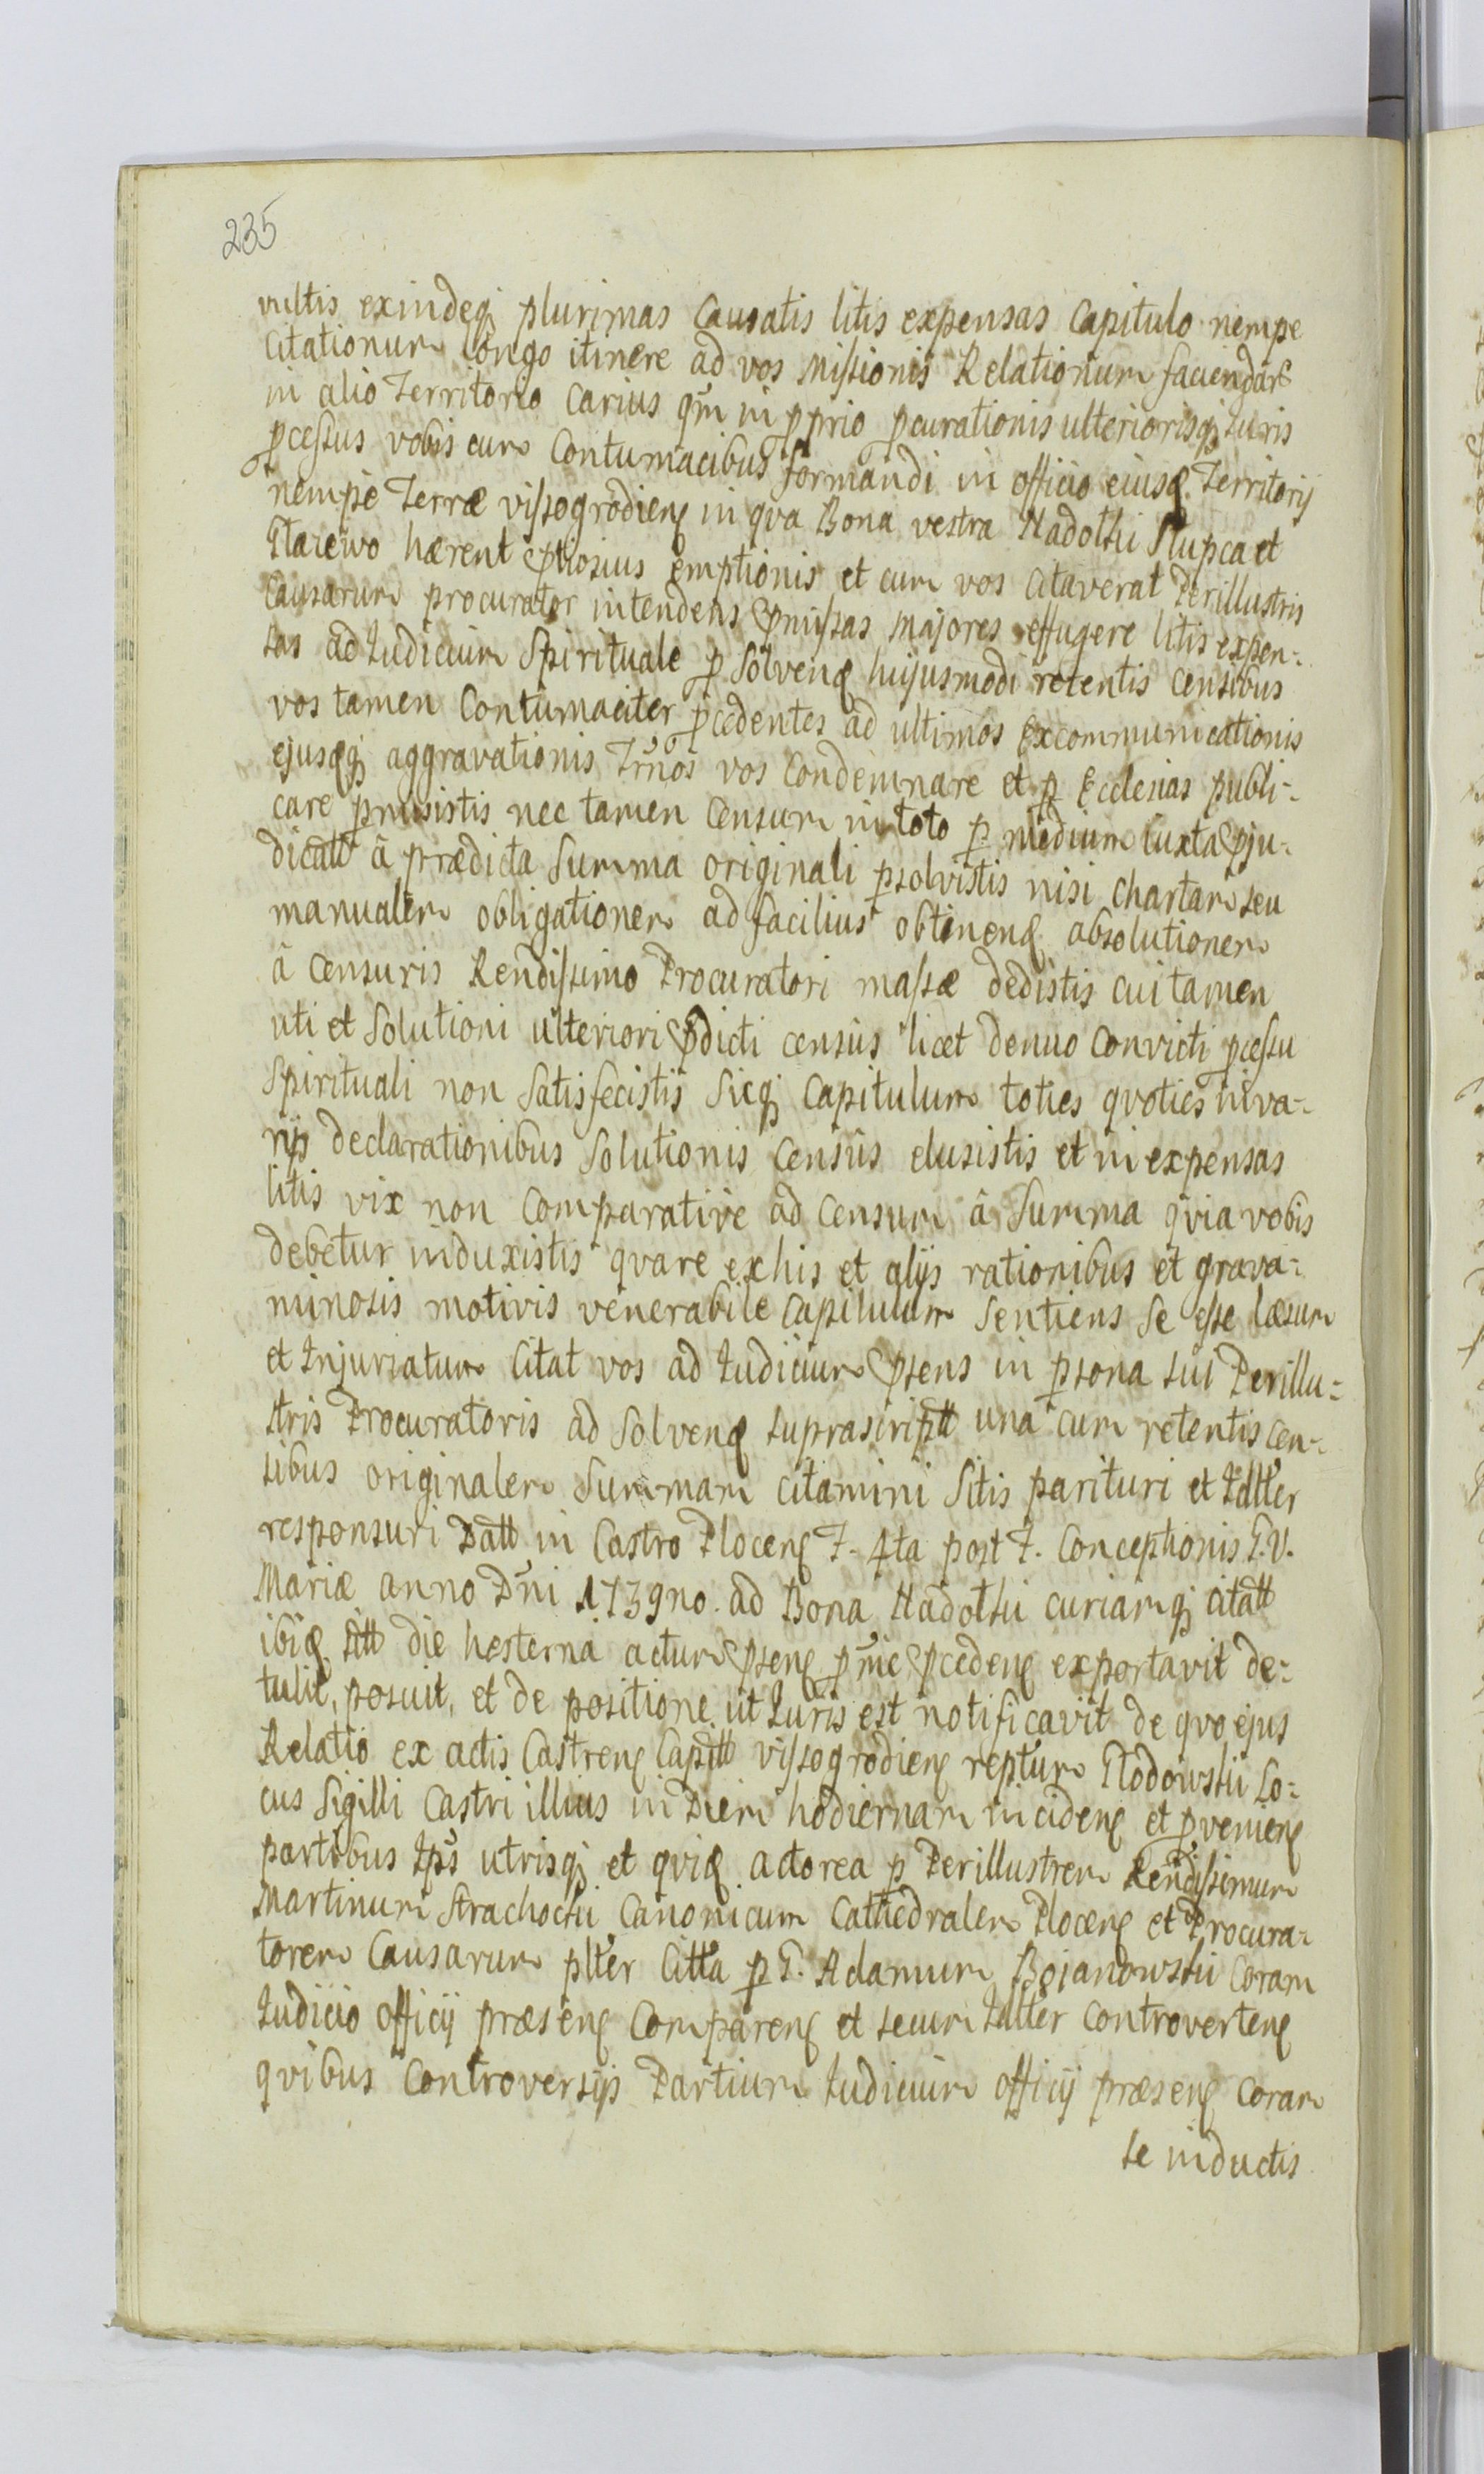 235
vultis exindeq; plurimas causatis litis expensas Capitulo nempe
Citationum longo itinere ad vos Missionis Relationum faciendar
in alio Territorio Carius qm̃ in pprio pcurationis ulteriorisq; Iuris
pcessus vobiscum Contumacibus formandi in officio eiusq. Territorij
nempe Terræ vissogrodien in qva Bona vestra Nadolki Slupca et
hærent ptiosius emptionis et cum vos citaverat Perillustris
Causarum procurator intendens pmissas Majores effugere litis expen-
sas ad Iudicium Spirituale p Solven hujusmodi retentis censibus
vos tamen Contumaciter pcedentes ad ultimos Excommunicationis
ejusqq; aggravationis Trm̃nos vos condemnare et p Ecclesias publi-
care pmisistis nec tamen Censum in toto p medium Iuxta pju-
dicatt â prædicta Summa originali psolvistis nisi Chartam seu
manualem obligationem ad facilius obtinen absolutionem
â Censuris Rendissimo Procuratori massæ dedistis cui tamen
uti et Solutioni ulteriori pdicti censûs licet denuo convicti pcessu
Spirituali non Satisfecistis Sicq; Capitulum toties qvoties in va-
rijs declarationibus Solutionis Censûs elusistis et in expensas
litis vix non Comparative ad Censum â Summa qvia vobis
debetur induxistis qvare ex his et alijs rationibus et grava-
minosis motivis venerabile Capitulum Sentiens Se esse læsum
et Injuriatum Citat vos ad Iudicium psens in psona sui Perillu-
stris Procuratoris ad Solven suprascriptt una cum retentis cen-
sibus originalem Summam citamini Sitis parituri et Idtter
responsuri Datt in Castro Plocen F. 4ta post F. Conceptionis B.V.
Mariæ anno Dni 1739no. ad Bona Nadolki curiamq; citatt
ibiq sitt die hesterna actum psen pnie pceden exportavit de-
tulit, posuit, et de positione ut Iuris est notificavit de qvo ejus
Relatio ex actis Castren Capitt vissogrodien reptum Lo-
cus Sigilli Castri illius in Diem hodiernam inciden et pvenien
partibus Ips utrisq; et qvid actorea p Perillustrem Rendissimum
Martinum Strachocki Canonicum Cathedralem Plocen et Procura-
torem Causarum pltter Citta p G. Adamum Bojanowski Coram
Iudicio officij præsen Comparen et secum Idtter controverten
qvibus Controversijs Partium Iudicium officij præsen coram
se inductis